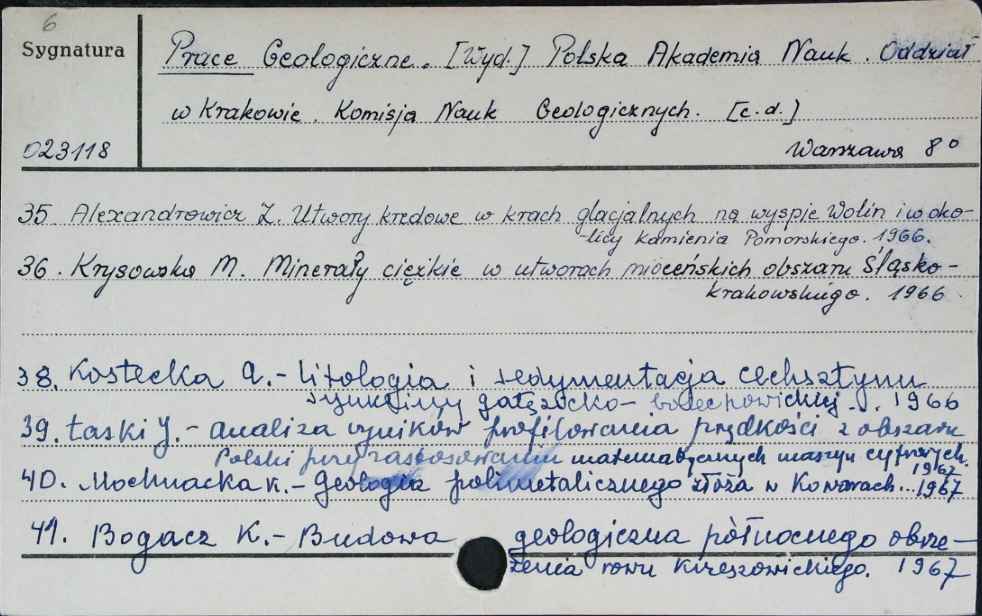 6
Sygnatura
Prace Geologiczne. [Wyd.] Polska Akademia Nauk. Oddział
w Krakowie. Komisja Nauk Geologicznych. [c.d.]
023118
Warszawa 8°
35. Alexandrowicz Z. Utwory kredowe w krach glacjalnych na wyspie Wolin i w oko-
-licy Kamienia Pomorskiego. 1966.
36. Krysowska M. Minerały ciężkie w utworach mioceńskich obszaru Śląsko-
krakowskiego. 1966
38. Kostecka A. - Litologia i sedymentacja cechsztynu
synkliny gałęzicko-bolechowickiej. 1966
39. Łaski J. - analiza wyników profilowania prędkości z obszaru
Polski przy zastosowaniu matematycznych maszyn cyfrowych.
1967
40. Mochnacka K. - Geologia polimetalicznego złoża w Kowarach... 1967
41. Bogacz K. - Budowa geologiczna północnego obrze-
żenia rowu Krzeszowickiego. 1967